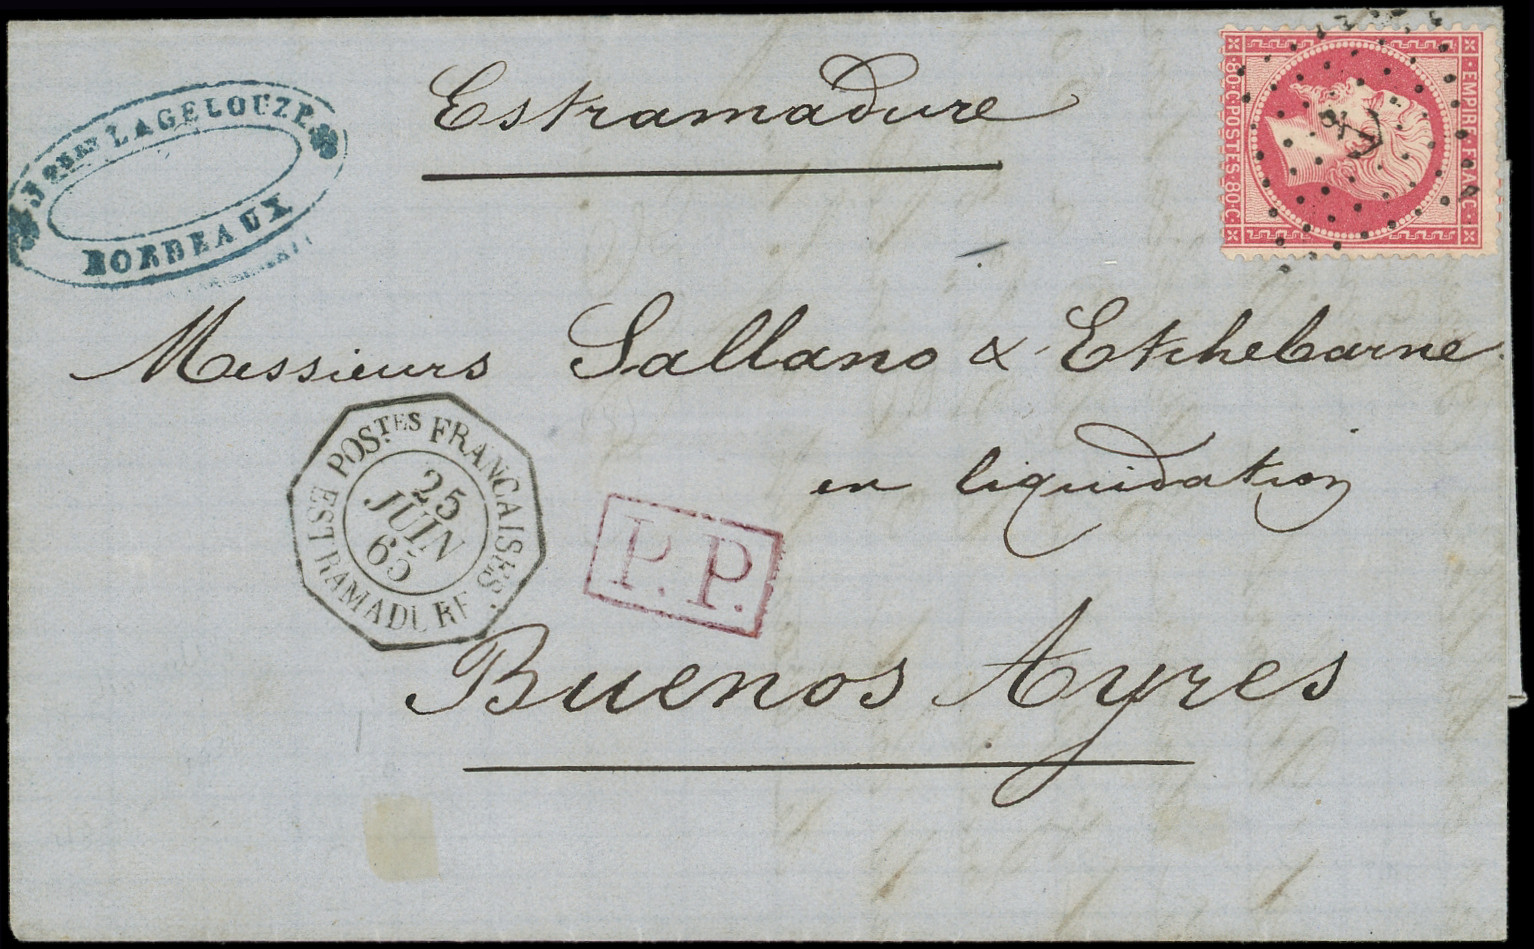 Estramadure
LAGELOUZE
BORDEAUX
EMPIRE FRANC.
80.C POSTES 80.C
Messieurs Sallano & Etchebarne
en liquidation
POSTES FRANCAISES
25
JUIN
65
ESTRAMADURE
P.P.
Buenos Ayres